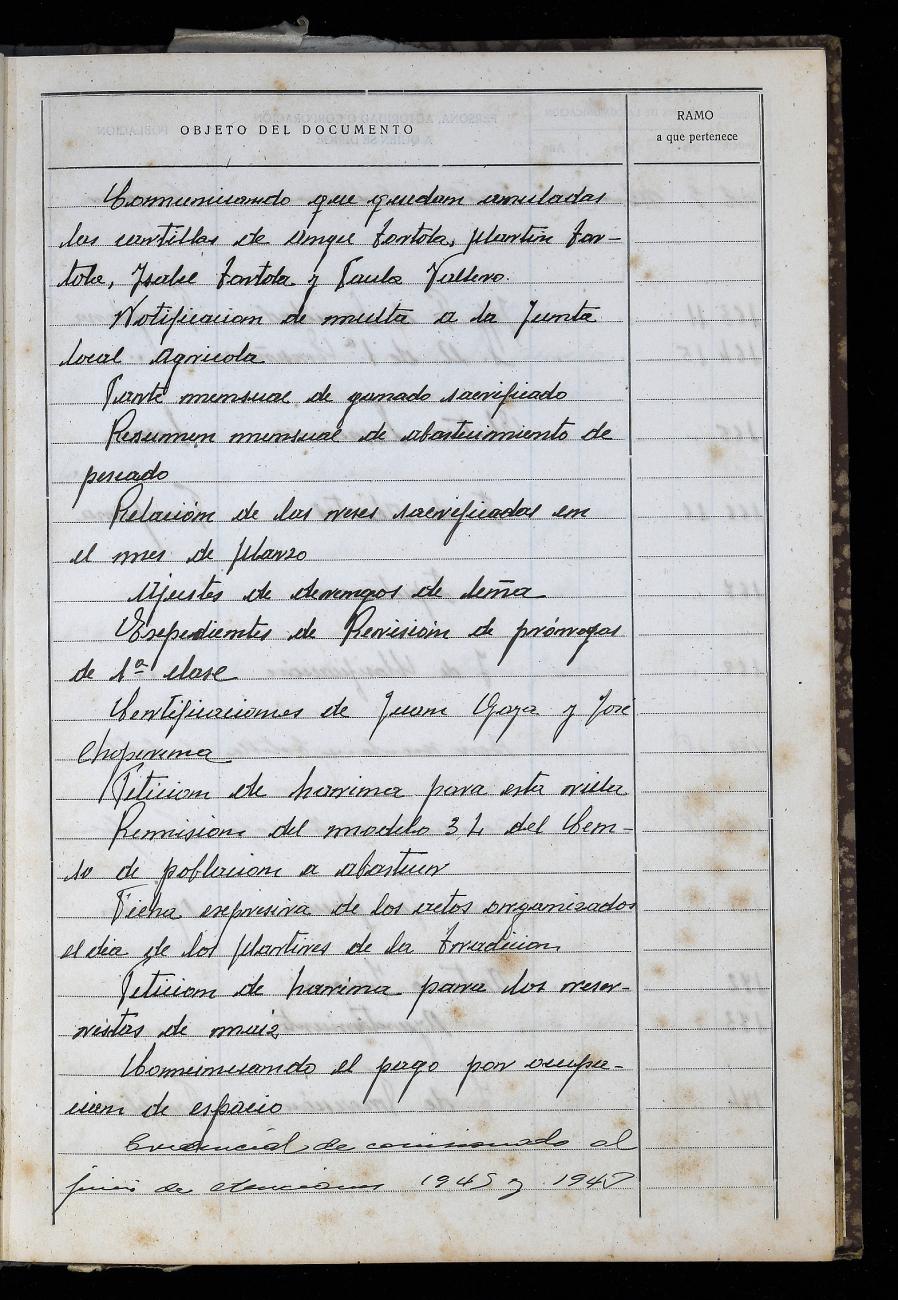 OBJETO DEL DOCUMENTO
RAMO
a que pertenece
Comunicando que quedan anuladas
las cartillas de Angel Tortola, Martin Tor-
tola, Ysabel Tortola y Paula Vallero.
Notificacion de multa a la Junta
local Agricola
Parte mensual de ganado sacrificado
Resumen mensual de abastecimiento de
pescado
Relación de las reses sacrificadas en
el mes de Marzo
Ajustes de devengos de leña
Expedientes de Revisión de prórrogas
de 1ª clase
Certificaciones de Juan Goya y José
Choperena
Peticion de harina para esta villa
Remision del modelo 32 del Cen-
so de poblacion a abastecer
Ficha expresiva de los actos organizados
el dia de los Martires de la Tradicion
Peticion de harina para los reser-
vistas de maiz
Comunicando el pago por ocupa-
cion de espacio
Credencial de comisionado al
juicio de exenciones 1945 y